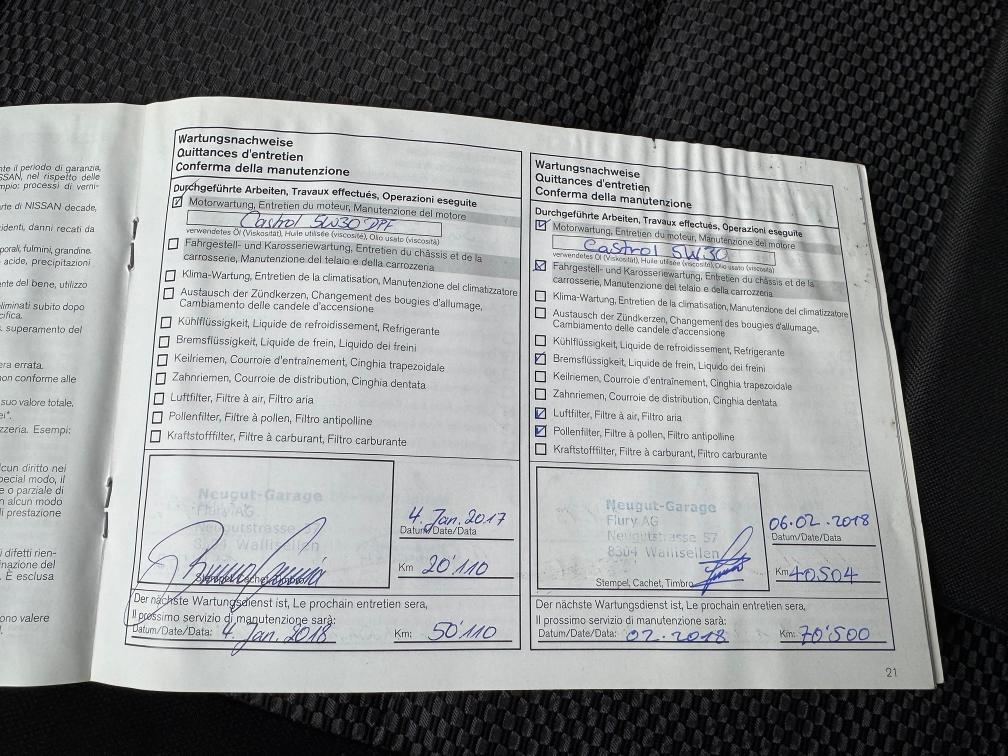 nte il periodo di garanzia,
SSAN, nel rispetto delle
mpio: processi di verni-
arte di NISSAN decade,
identi, danni recati da
porali, fulmini, grandine.
acide, precipitazioni
ente del bene, utilizzo
eliminati subito dopo
cifica.
superamento del
era errata.
non conforme alle
suo valore totale.
ei".
zzeria. Esempi:
lcun diritto nei
pecial modo, il
e o parziale di
n alcun modo
di prestazione
i difetti rien-
nazione del
È esclusa
ono valere
Wartungsnachweise
Quittances d'entretien
Conferma della manutenzione
Durchgeführte Arbeiten, Travaux effectués, Operazioni eseguite
Motorwartung, Entretien du moteur, Manutenzione del motore
Castrol 5W30 DPF
verwendetes Öl (Viskosität), Huile utilisée (viscosité), Olio usato (viscosità)
Fahrgestell- und Karosseriewartung, Entretien du châssis et de la
carrosserie, Manutenzione del telaio e della carrozzeria
Klima-Wartung, Entretien de la climatisation, Manutenzione del climatizzatore
Austausch der Zündkerzen, Changement des bougies d'allumage,
Cambiamento delle candele d'accensione
Kühlflüssigkeit, Liquide de refroidissement, Refrigerante
Bremsflüssigkeit, Liquide de frein, Liquido dei freini
Keilriemen, Courroie d'entraînement, Cinghia trapezoidale
Zahnriemen, Courroie de distribution, Cinghia dentata
Luftfilter, Filtre à air, Filtro aria
Pollenfilter, Filtre à pollen, Filtro antipolline
Kraftstofffilter, Filtre à carburant, Filtro carburante
Neugut-Garage
Flury AG
Neugutstrasse 57
8304 Wallisellen
Stempel, Cachet, Timbro
4. Jan. 2017
Datum/Date/Data
Km 20'110
Der nächste Wartungsdienst ist, Le prochain entretien sera,
Il prossimo servizio di manutenzione sarà:
Datum/Date/Data: 4. Jan. 2018 Km: 50'110
Wartungsnachweise
Quittances d'entretien
Conferma della manutenzione
Durchgeführte Arbeiten, Travaux effectués, Operazioni eseguite
Motorwartung, Entretien du moteur, Manutenzione del motore
Castrol 5W30
verwendetes Öl (Viskosität), Huile utilisée (viscosité), Olio usato (viscosità)
Fahrgestell- und Karosseriewartung, Entretien du châssis et de la
carrosserie, Manutenzione del telaio e della carrozzeria
Klima-Wartung, Entretien de la climatisation, Manutenzione del climatizzatore
Austausch der Zündkerzen, Changement des bougies d'allumage,
Cambiamento delle candele d'accensione
Kühlflüssigkeit, Liquide de refroidissement, Refrigerante
Bremsflüssigkeit, Liquide de frein, Liquido dei freini
Keilriemen, Courroie d'entraînement, Cinghia trapezoidale
Zahnriemen, Courroie de distribution, Cinghia dentata
Luftfilter, Filtre à air, Filtro aria
Pollenfilter, Filtre à pollen, Filtro antipolline
Kraftstofffilter, Filtre à carburant, Filtro carburante
Neugut-Garage
Flury AG
Neugutstrasse 57
8304 Wallisellen
Stempel, Cachet, Timbro
06.02.2018
Datum/Date/Data
Km 40504
Der nächste Wartungsdienst ist, Le prochain entretien sera,
Il prossimo servizio di manutenzione sarà:
Datum/Date/Data: 02.2018 Km: 70'500
21